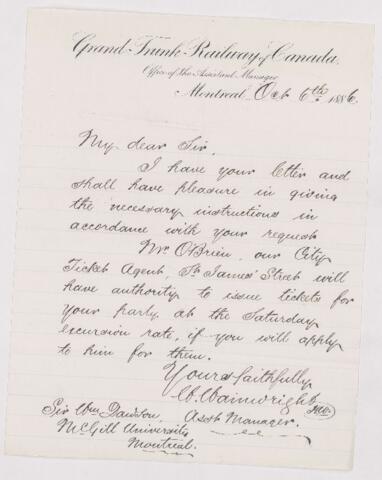 Grand Trunk Railway of Canada.
Office of the Assistant Manager
Montreal Oct 6th 1886
My dear Sir,
I have your letter and
shall have pleasure in giving
the necessary instructions in
accordance with your request
Mr O'Brien, our City
Ticket Agent, St James' Street will
have authority to issue tickets for
your party at the Saturday
excursion rate, if you will apply
to him for them.
Yours faithfully
W. Wainwright
Asst Manager.
Sir Wm Dawson,
McGill University
Montreal.